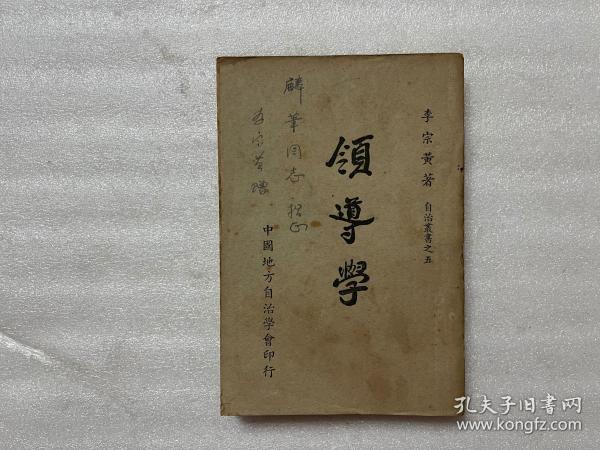 李宗黃著 自治叢書之五
領導學
麟華同志指正
李宗黃贈
中國地方自治學會印行
孔夫子旧书网
www.kongfz.com